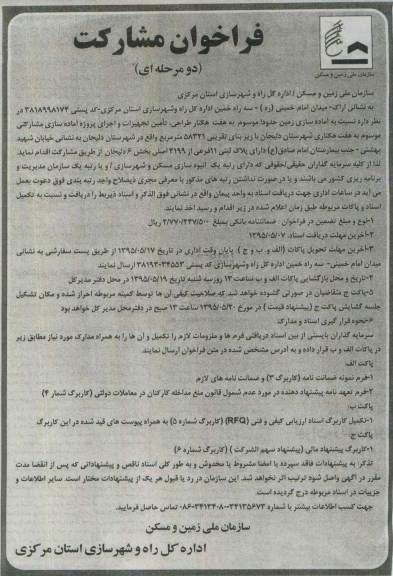 فراخوان مشارکت
(دو مرحله ای)
سازمان ملی زمین و مسکن
سازمان ملی زمین و مسکن / اداره کل راه و شهرسازی استان مرکزی
به نشانی اراک- میدان امام خمینی (ره) - سه راه خمین اداره کل راه وشهرسازی استان مرکزی-کد پستی ۳۸۱۸۹۹۸۱۷۴ در
نظر دارد نسبت به آماده سازی زمین حدودا موسوم به هفت هکتار طراحی، تأمین تجهیزات و اجرای پروژه آماده سازی مشارکتی
موسوم به هفت هکتاری شهرستان دلیجان با زیر بنای تقریبی ۵۸۳۲۱ مترمربع واقع در شهرستان دلیجان به نشانی خیابان شهید
بهشتی - جنب بیمارستان امام صادق(ع) دارای پلاک ثبتی ۱۱فرعی از ۴۱۹۹ اصلی بخش ۶ دلیجان از طریق مشارکت اقدام نماید.
لذا از کلیه سرمایه گذاران حقیقی/حقوقی که دارای رتبه یک انبوه سازی مسکن و شهرسازی / و یا رتبه یک سازمان مدیریت و
برنامه ریزی کشور می باشند و یا در صورت نداشتن رتبه های مذکور با معرفی مجری ذیصلاح واجد رتبه بندی فوق دعوت بعمل
می آید در ساعات اداری جهت دریافت اسناد به واحد پیمان واقع در نشانی فوق الذکر و اسناد ذیربط را دریافت و نسبت به تکمیل
اسناد و پاکات مربوطه طبق زمان اعلام شده در زیر اقدام و رسید اخذ نمایند.
۱-نوع و مبلغ تضمین در فراخوان : ضمانتنامه بانکی بمبلغ ۲/۷۷۰/۲۴۷/۵۰۰ ریال
۲-آخرین مهلت دریافت اسناد: ۱۳۹۵/۰۵/۰۷
۳-آخرین مهلت تحویل پاکات (الف و ب و ج ): پایان وقت اداری در تاریخ ۱۳۹۵/۰۵/۱۷ از طریق پست سفارشی به نشانی
میدان امام خمینی- سه راه خمین اداره کل راه وشهرسازی کد پستی ۳۴۵۵۳-۳۸۱۹۳ ارسال نمایند
۴-تاریخ و محل بازگشایی پاکات الف و ب ساعت ۱۳ روزسه شنبه تاریخ ۱۳۹۵/۰۵/۱۹ در محل دفتر مدیرکل
۵-پاکت ج متقاضیان در صورتی گشوده خواهد شد که صلاحیت کیفی آن ها توسط کمیته مربوطه احراز شده و مکان تشکیل
جلسه گشایش پاکت ج (پیشنهاد قیمت ) در مورخ ۱۳۹۵/۰۵/۲۰ ساعت ۱۳ صبح در دفتر محل مدیر کل خواهد بود
۶-نحوه قرار گیری اسناد و مدارک
سرمایه گذاران بایستی از بین اسناد دریافتی فرم ها و ملزومات لازم را تکمیل و آن ها را به همراه مدارک مورد نیاز مطابق زیر
در پاکات الف و ب قرار داده و به آدرس مشخص شده در متن فراخوان ارسال نمایند.
پاکت الف:
۱-فرم نمونه ضمانت نامه (کاربرگ ۳) و ضمانت نامه های لازم
۲-فرم تعهد نامه پیشنهاد دهنده در مورد عدم شمول قانون منع مداخله کارکنان در معاملات دولتی (کاربرگ شمار ۴)
پاکت ب:
۱-تکمیل کاربرگ اسناد ارزیابی کیفی و فنی (RFQ) (کاربرگ شماره ۵) به همراه پیوست های قید شده در این کاربرگ
پاکت ج:
۱-کاربرگ پیشنهاد مالی (پیشنهاد سهم الشرکت ) (کاربرگ شماره ۶)
تذکر: به پیشنهادات فاقد سپرده یا امضا مشروط یا مخدوش و به طور کلی اسناد ناقص و پیشنهاداتی که پس از انقضا مدت
مقرر در آگهی واصل شود ترتیب اثر نخواهد شد. این سازمان در رد یا قبول هر یک از پیشنهادات مختار است. سایر اطلاعات و
جزییات در اسناد مربوطه درج گردیده است.
جهت کسب اطلاعات بیشتر با شماره ۳۴۱۳۵۶۷۳-۳۴۱۳۴۰۸۰-۰۸۶ تماس حاصل فرمایید.
سازمان ملی زمین و مسکن
اداره کل راه و شهرسازی استان مرکزی